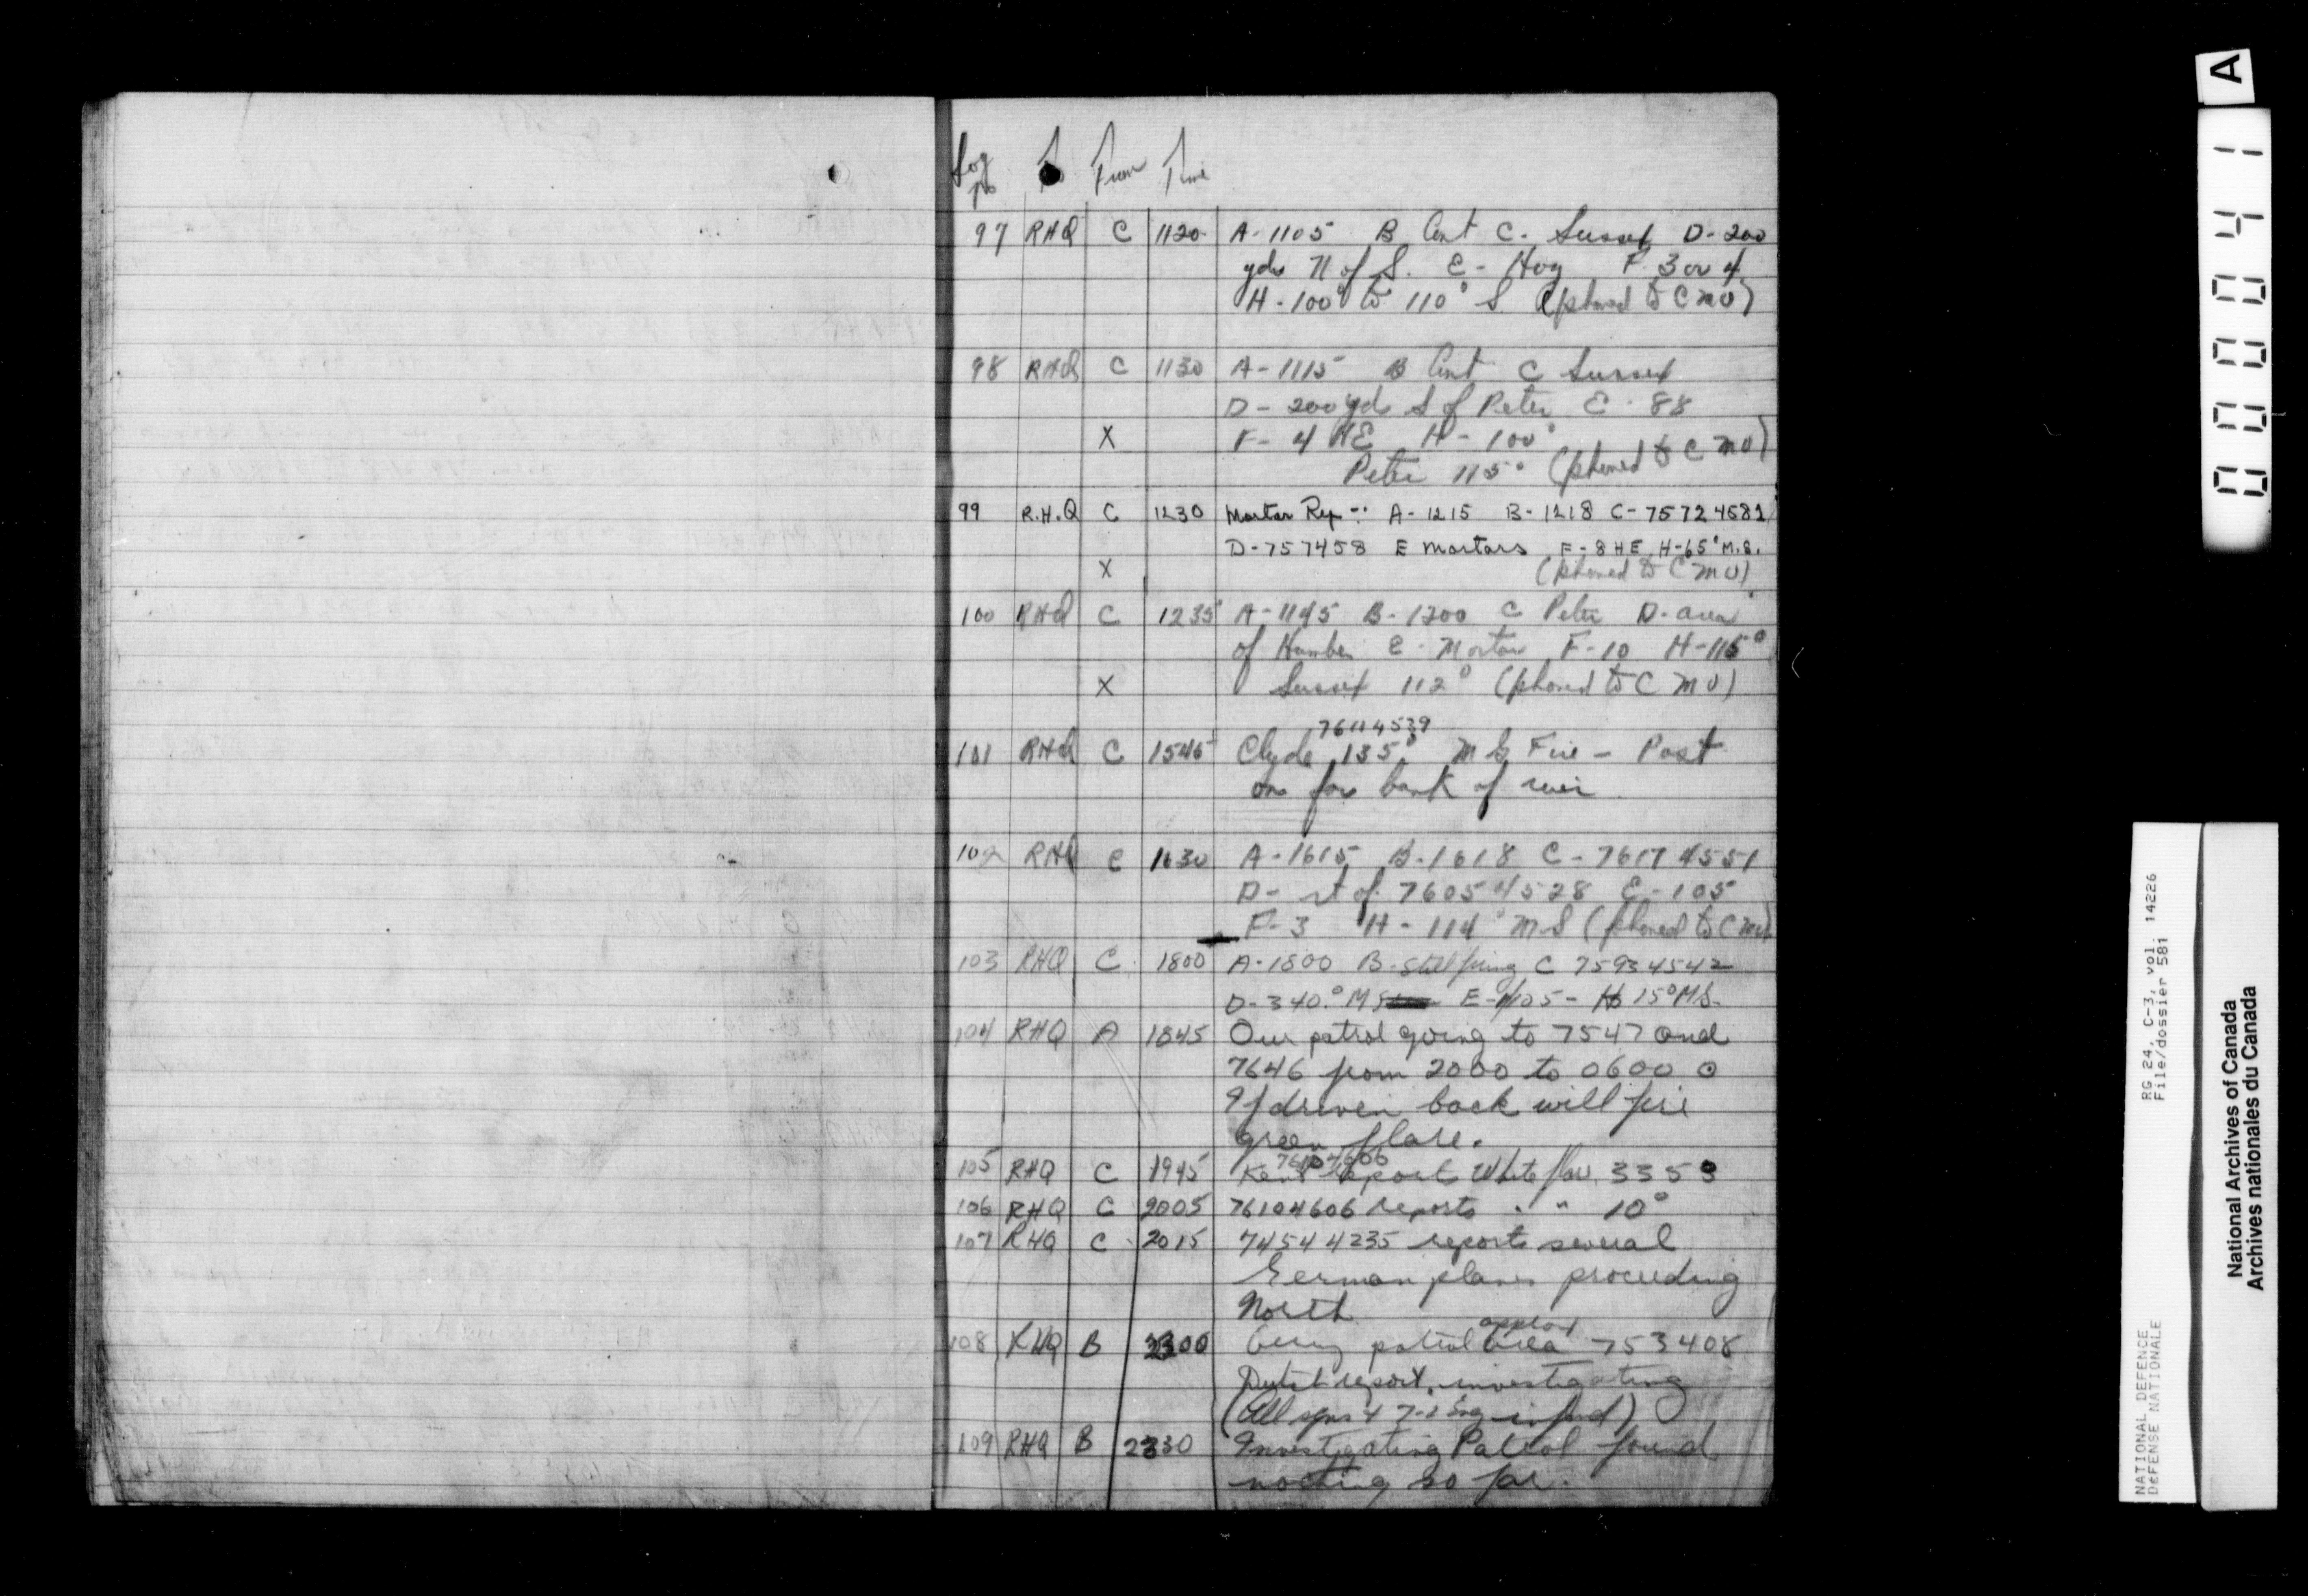 Log No To From Time
97 RHQ C 1120 A-1105 B Cont C- Sussex D-200
yds N of S. E- How F. 3 or 4
H-100° to 110° S. (phoned to CMO)
98 RHQ C 1130 A-1115 B Cont C Sussex
D- 200 yds S of Peter E- 88
X F- 4 HE H- 100°
Peter 115° (phoned to CMO)
99 R.H.Q C 1230 Mortar Rep -: A-1215 B-1218 C-75724581
D-757458 E Mortars F-8 HE H-65° M.S.
X (phoned to CMO)
100 RHQ C 1235 A-1145 B-1200 C Peter D-area
of Humber E- Mortar F-10 H-115°
X Sussex 112° (phoned to CMO)
76114539
101 RHQ C 1545 Clyde 135° MG Fire - Post
on far bank of river
102 RHQ C 1630 A-1615 B-1618 C-76174551
D- rt of 76054528 E-105
F-3 H-114° MS (phoned to CMO)
103 RHQ C 1800 A-1800 B-Still firing C 75934542
D-340° MS E-105- H 15° MS.
104 RHQ A 1845 Our patrol going to 7547 and
7646 from 2000 to 0600 O
If driven back will fire
green flare.
76104606
105 RHQ C 1945 Kent report White flare 335°
106 RHQ C 2005 76104606 reports " " 10°
107 RHQ C 2015 74544235 reports several
German planes proceeding
North
approx
108 RHQ B 2300 patrol area 753408
Dutch report. investigating
(All sqns &
109 RHQ B 2330 Investigating Patrol found
nothing so far.
A
0000041
RG 24, C-3, vol. 14226
File/dossier 581
NATIONAL DEFENCE
DÉFENSE NATIONALE
National Archives of Canada
Archives nationales du Canada